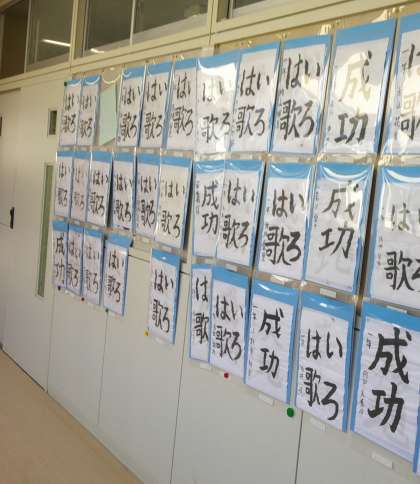 いろ
は歌
いろ
は歌
いろ
は歌
いろ
は歌
いろ
は歌
いろ
は歌
いろ
は歌
いろ
は歌
成功
いろ
は歌
いろ
は歌
いろ
は歌
いろ
は歌
いろ
は歌
いろ
は歌
成功
いろ
は歌
いろ
は歌
成功
いろ
は歌
成功
いろ
は歌
いろ
は歌
いろ
は歌
いろ
は歌
は歌
いろ
は歌
成功
いろ
は歌
成功